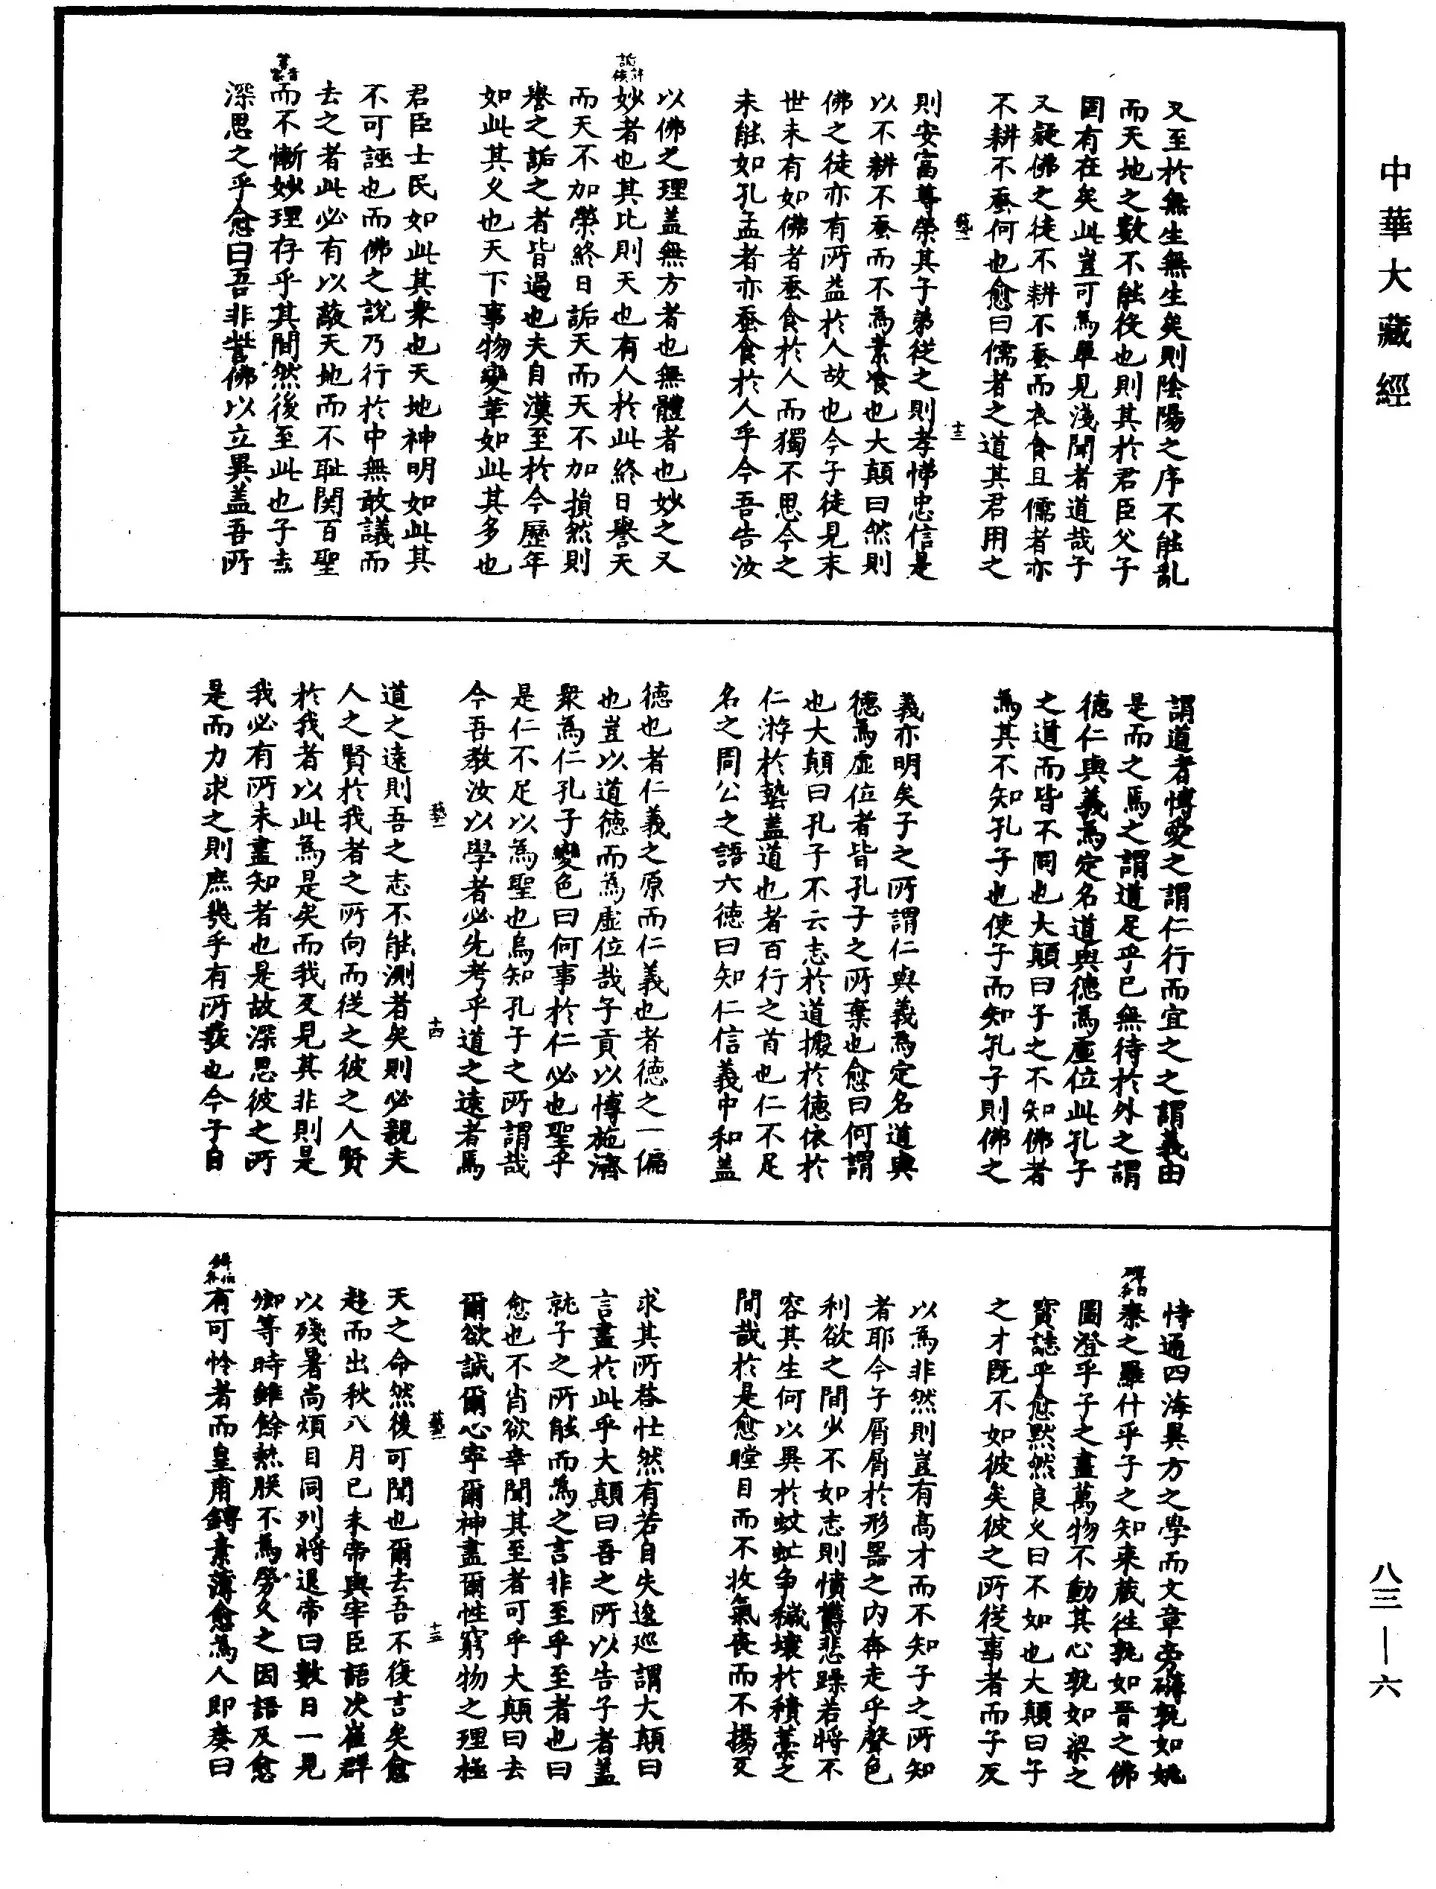 中華大藏經
又至於無生無生矣則陰陽之序不能亂
而天地之數不能役也則其於君臣父子
固有在矣此豈可為單見淺聞者道哉子
又疑佛之徒不耕不蚕而衣食且儒者亦
不耕不蚕何也愈曰儒者之道其君用之
則安富尊榮其子弟從之則孝悌忠信是
以不耕不蚕而不為素飡也大顛曰然則
佛之徒亦有所益於人故也今子徒見末
世未有如佛者蚕食於人而獨不思今之
未能如孔孟者亦蚕食於人乎今吾告汝
以佛之理盖無方者也無體者也妙之又
妙者也其比則天也有人於此終日譽天
而天不加榮終日詬天而天不加損然則
譽之詬之者皆過也夫自漢至於今歷年
如此其久也天下事物變革如此其多也
君臣士民如此其衆也天地神明如此其
不可誣也而佛之說乃行於中無敢議而
去之者此必有以蔽天地而不耻関百聖
而不慚妙理存乎其間然後至此也子盍
深思之乎愈曰吾非訾佛以立異盖吾所
謂道者愽愛之謂仁行而宜之之謂義由
是而之焉之謂道足乎已無待於外之謂
德仁與義為定名道與德為虛位此孔子
之道而皆不同也大顛曰子之不知佛者
為其不知孔子也使子而知孔子則佛之
義亦明矣子之所謂仁與義為定名道與
德為虛位者皆孔子之所棄也愈曰何謂
也大顛曰孔子不云志於道據於德依於
仁游於藝盖道也者百行之首也仁不足
名之周公之語六德曰知仁信義中和盖
德也者仁義之原而仁義也者德之一偏
也豈以道德而為虛位哉子貢以愽施濟
衆為仁孔子變色曰何事於仁必也聖乎
是仁不足以為聖也烏知孔子之所謂哉
今吾教汝以學者必先考乎道之遠者焉
道之遠則吾之志不能測者矣則必親夫
人之賢於我者之所向而從之彼之人賢
於我者以此為是矣而我反見其非則是
我必有所未盡知者也是故深思彼之所
是而力求之則庶幾乎有所發也今子自
恃通四海異方之學而文章旁礴孰如姚
秦之羅什乎子之知来藏往孰如晉之佛
圖澄乎子之盡萬物不動其心孰如梁之
寳誌乎愈黙然良久曰不如也大顛曰子
之才既不如彼矣彼之所從事者而子反
以為非然則豈有高才而不知子之所知
者耶今子屑屑於形器之内奔走乎聲色
利欲之間少不如志則憤欝悲躁若將不
容其生何以異於蚊虻争穢壤於積藁之
間哉於是愈瞠目而不收氣喪而不揚反
求其所答忙然有若自失逡巡謂大顛曰
言盡於此乎大顛曰吾之所以告子者盖
就子之所能而為之言非至乎至者也曰
愈也不肖欲幸聞其至者可乎大顛曰去
爾欲誠爾心寧爾神盡爾性窮物之理極
天之命然後可聞也爾去吾不復言矣愈
趋而出秋八月已未帝與宰臣語次崔群
以殘暑尚煩目同列將退帝曰數日一見
卿等時雖餘熱朕不為勞久之因語及愈
有可怜者而皇甫鎛素薄愈為人即奏曰
八三—六